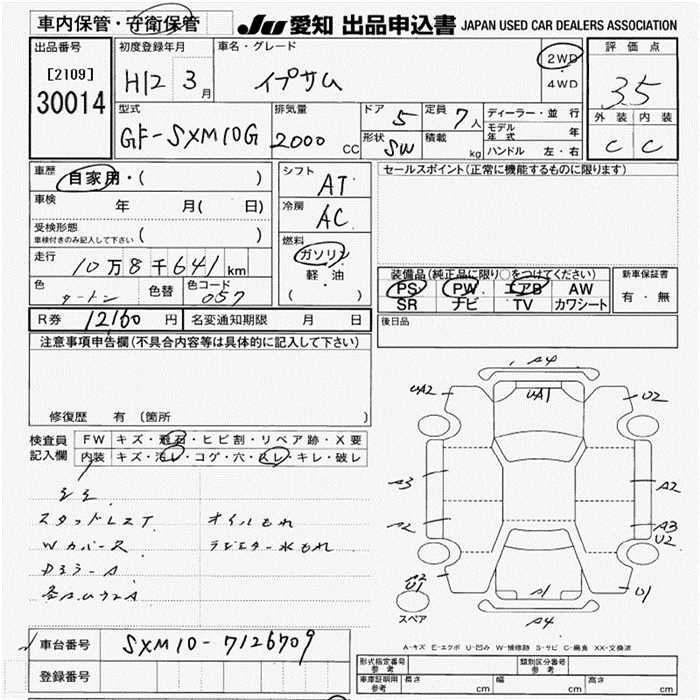 車内保管・守衛保管
JU 愛知 出品申込書 JAPAN USED CAR DEALERS ASSOCIATION
出品番号 初度登録年月 車名・グレード 2WD 4WD 評価点
[2109]
30014 H12 3月 イプサム 3.5
型式 排気量 ドア 5 定員 7人 ディーラー・並行 外装 内装
GF-SXM10G 2000 CC 形状 SW 積載 kg モデル年式 年 C C
ハンドル 左・右
車歴 自家用・( ) シフト AT セールスポイント(正常に機能するものに限ります)
車検 年 月( 日) 冷房 AC
受検形態 ( )
車検付きのみ記入して下さい
燃料 ガソリン
走行 10万8千641km 軽油
装備品(純正品に限り○をつけてください) 新車保証書
色 色替 色コード 057 ( ・ ) PS PW エアB AW 有・無
SR ナビ TV カワシート
R券 12160 円 名変通知期限 月 日 後日品
注意事項申告欄(不具合内容等は具体的に記入して下さい)
修復歴 有(箇所
検査員記入欄 FW キズ・飛石・ヒビ割・リペア跡・X要
内装 キズ・汚レ・コゲ・穴・スレ・キレ・破レ
オイルもれ
Wカバース
ラジエター水もれ
A4
UA2 UA1 U2
A3 A2
A2 A3
U2
A2
U1 A1 U1
スペア A4
A-キズ E-エクボ U-凹み W-補修跡 S-サビ C-腐食 XX-交換済
車台番号 SXM10-7126709
登録番号
形式指定番号 参考 類別区分番号 参考
車庫証明用 参考 長さ cm 幅 cm 高さ cm